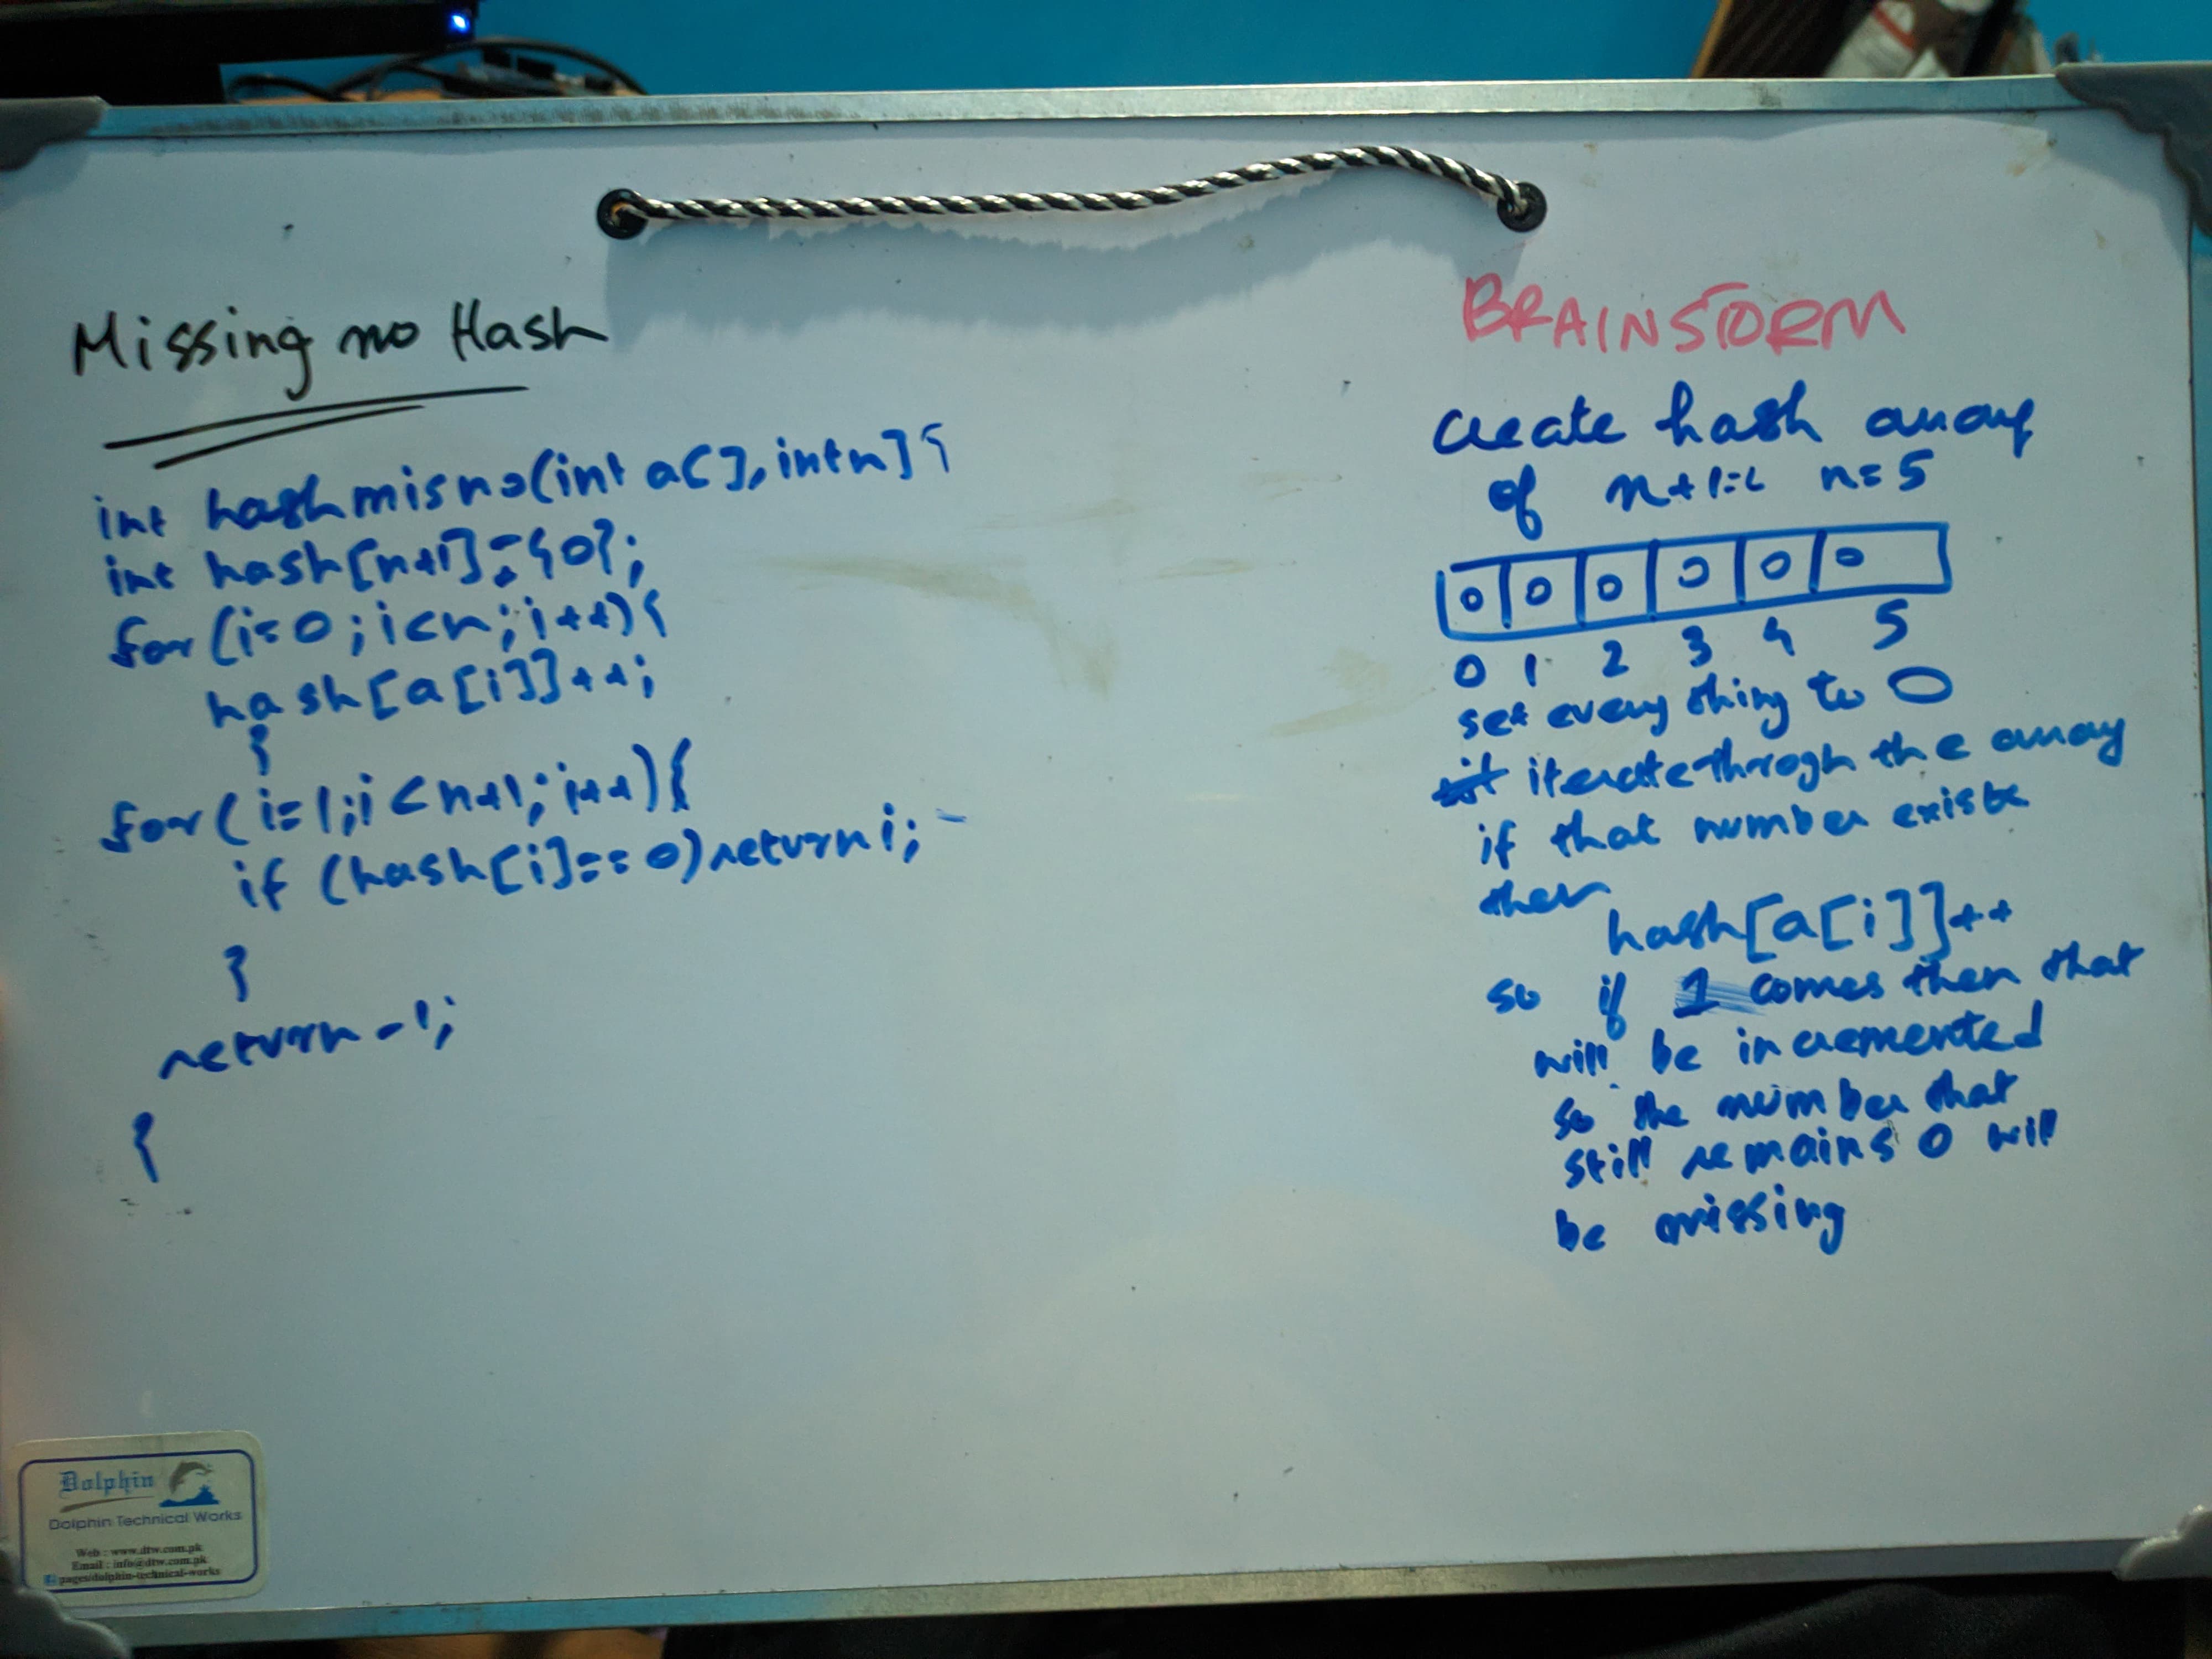 Missing no Hash
int hashmisno(int a[], int n] {
int hash[n+1] = {0};
for (i=0; i<n; i++) {
hash[a[i]]++;
}
for (i=1; i<n+1; i++) {
if (hash[i]==0) return i;
}
return -1;
{
BRAINSTORM
create hash array
of n+1= n=5
0 0 0 0 0 0
0 1 2 3 4 5
set every thing to 0
iterate throgh the array
if that number exists
then
hash[a[i]]++
so if 1 comes then that
will be incremented
so the number that
still remains 0 will
be missing
Dolphin
Dolphin Technical Works
Web : www.dtw.com.pk
Email : info@dtw.com.pk
pages/dolphin-technical-works